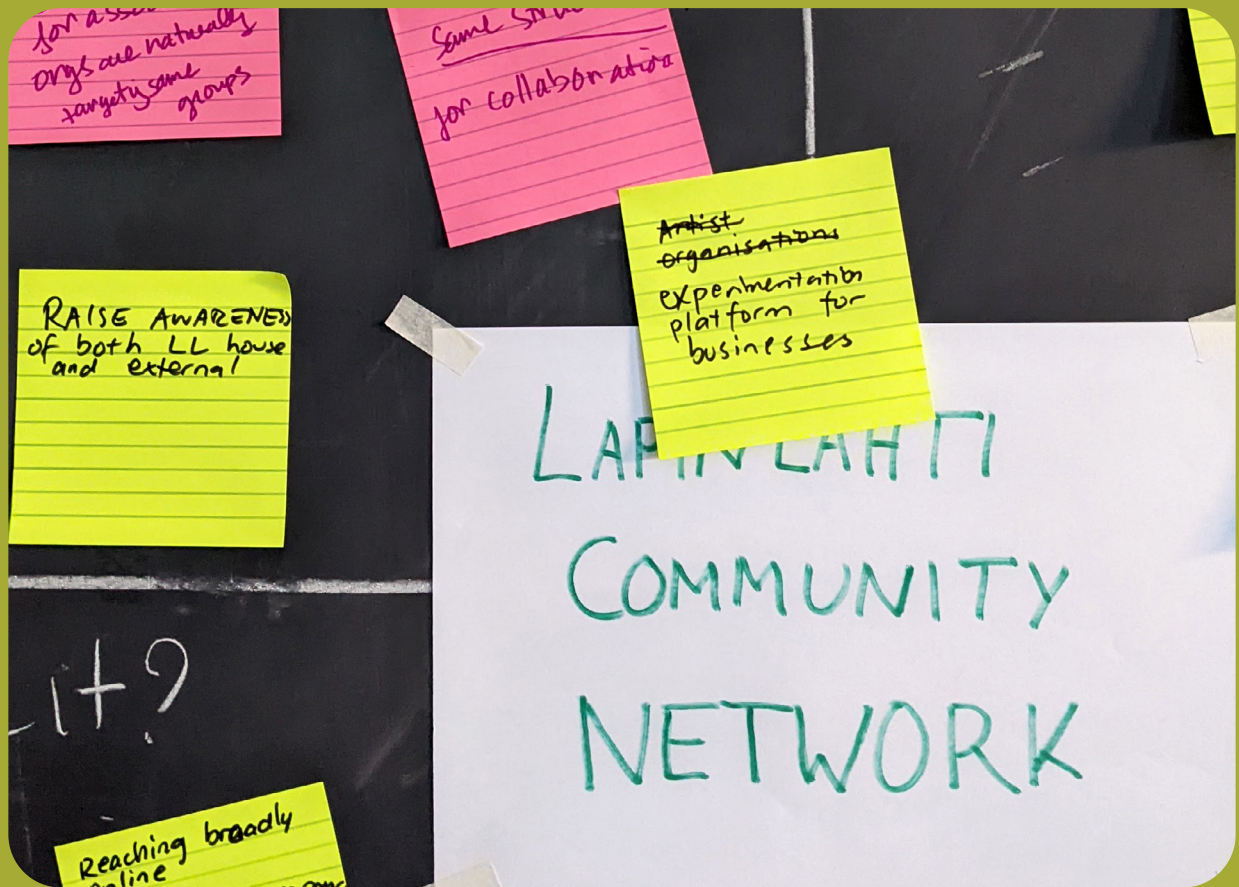 orgs are naturally
targeting same
groups
Same
for collaboration
Artist
organisations
experimentation
platform for
businesses
RAISE AWARENESS
of both LL house
and external
LAPINLAHTI
COMMUNITY
NETWORK
it?
Reaching broadly
online